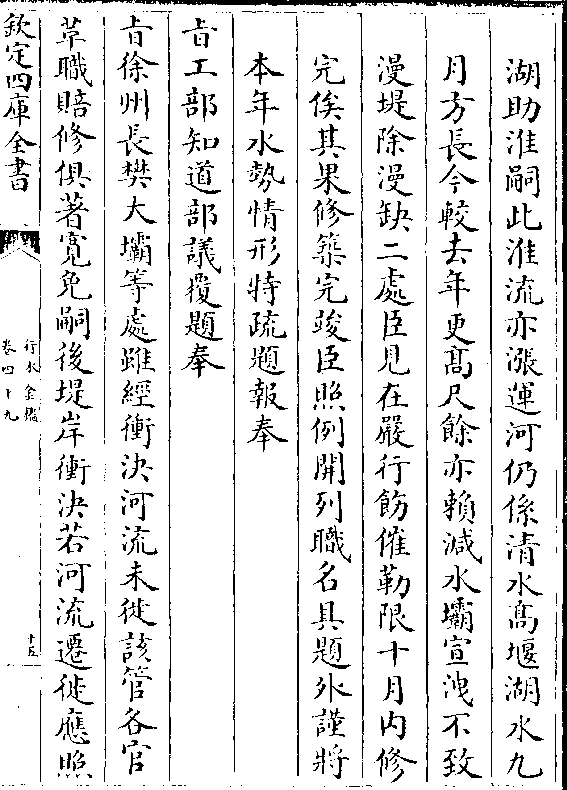 湖助淮嗣此淮流亦漲運河仍係清水髙堰湖水九
月方長今較去年更髙尺餘亦賴減水壩宣洩不致
漫堤除漫缺二處臣見在嚴行飭催勒限十月内修
完俟其果修築完竣臣照例開列職名具題外謹將
本年水勢情形特疏題報奉
㫖工部知道部議覆題奉
㫖徐州長樊大壩等處雖經衝決河流未徙該管各官
革職賠修俱著寛免嗣後堤岸衝決若河流遷徙應照
欽定四庫全書
行水金鑑
卷四十九
十五